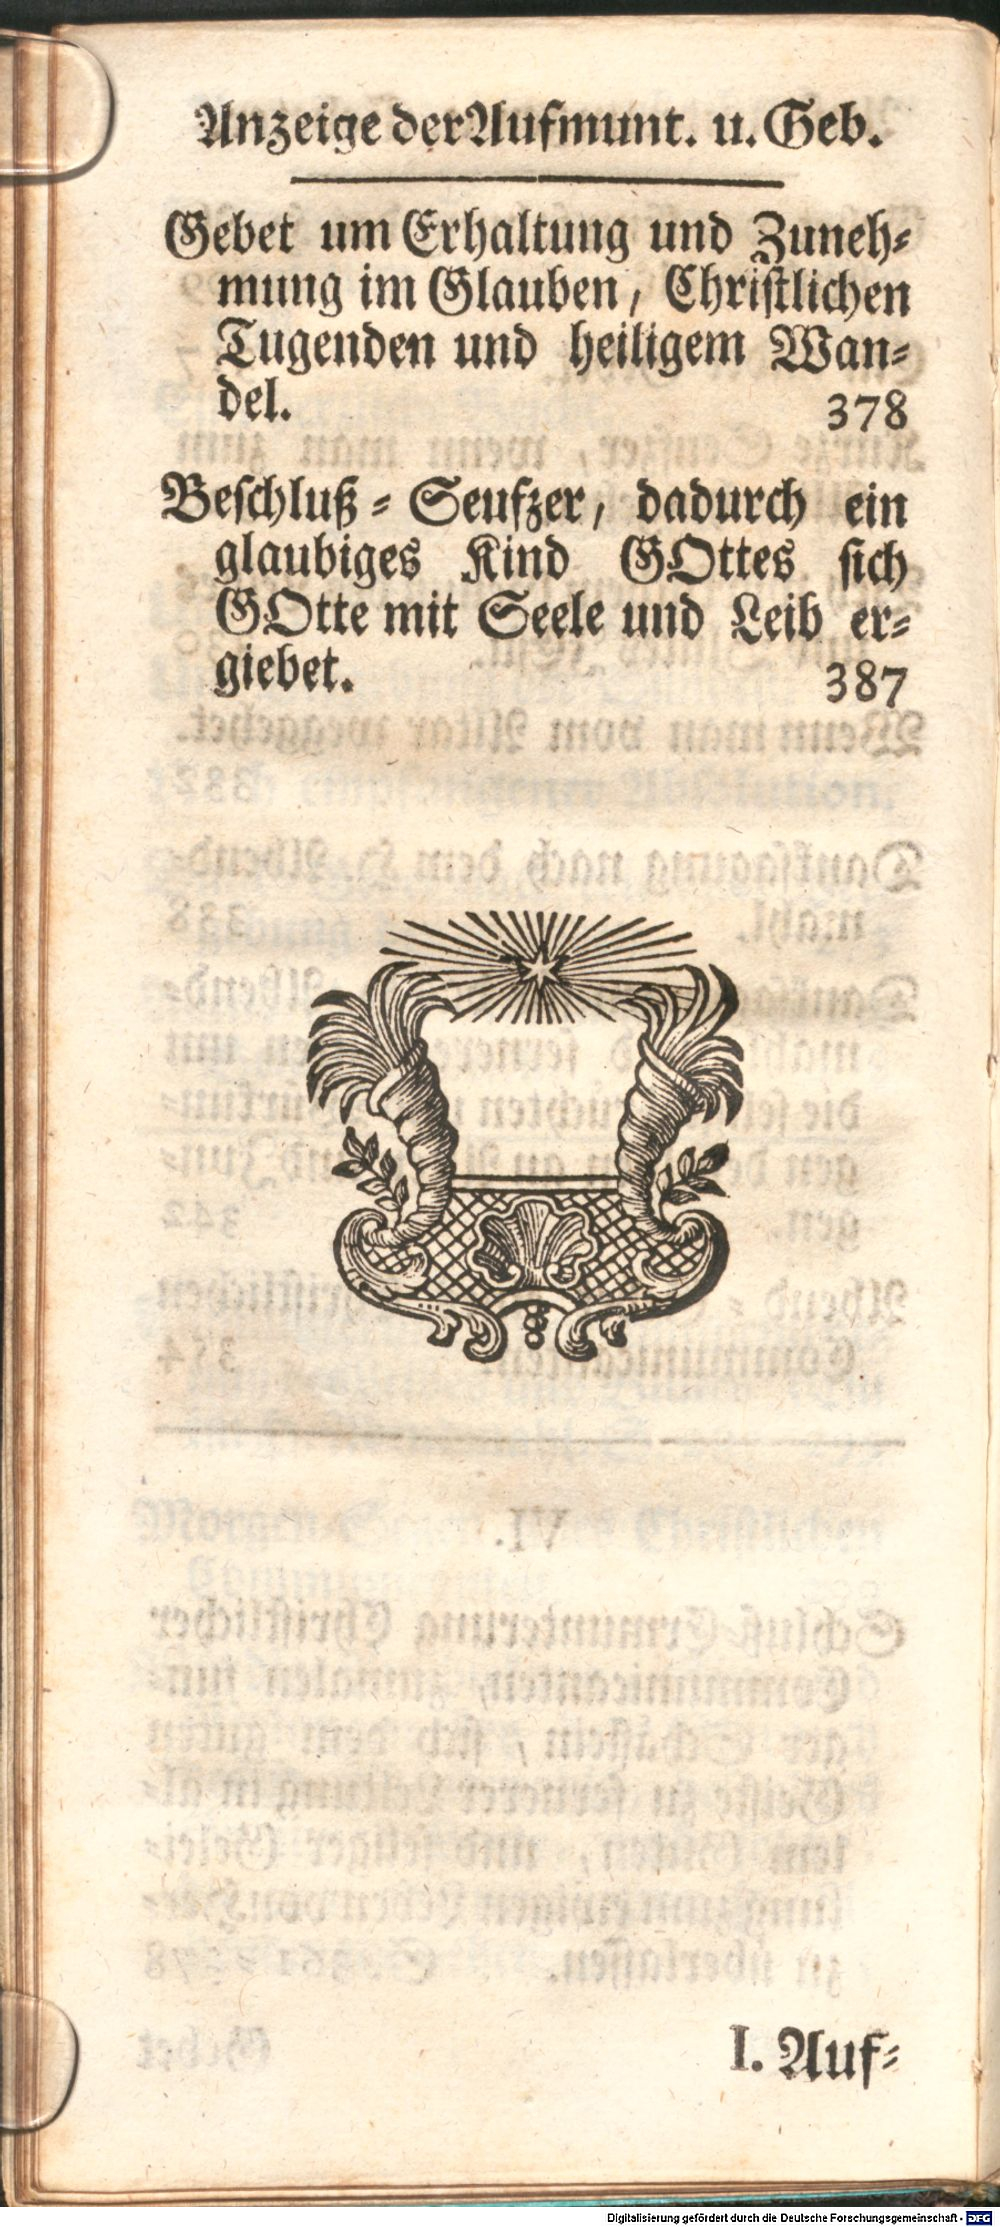 Anzeige der Aufmunt. u. Geb.
Gebet um Erhaltung und Zuneh-
mung im Glauben, Christlichen
Tugenden und heiligem Wan-
del. 378
Beschluß-Seufzer, dadurch ein
glaubiges Kind GOttes sich
GOtte mit Seele und Leib er-
giebet. 387
I. Auf-
Digitalisierung gefördert durch die Deutsche Forschungsgemeinschaft - DFG